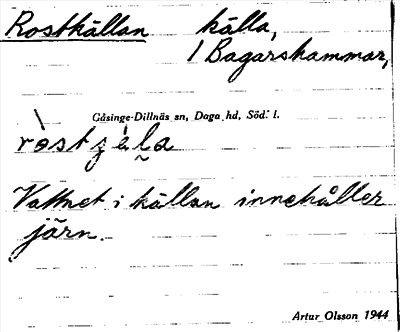 Rostkällan källa,
1 Bagarshammar,
Gåsinge-Dillnäs sn, Daga hd, Söd. l.
Vattnet i källan innehåller
järn.
Artur Olsson 1944